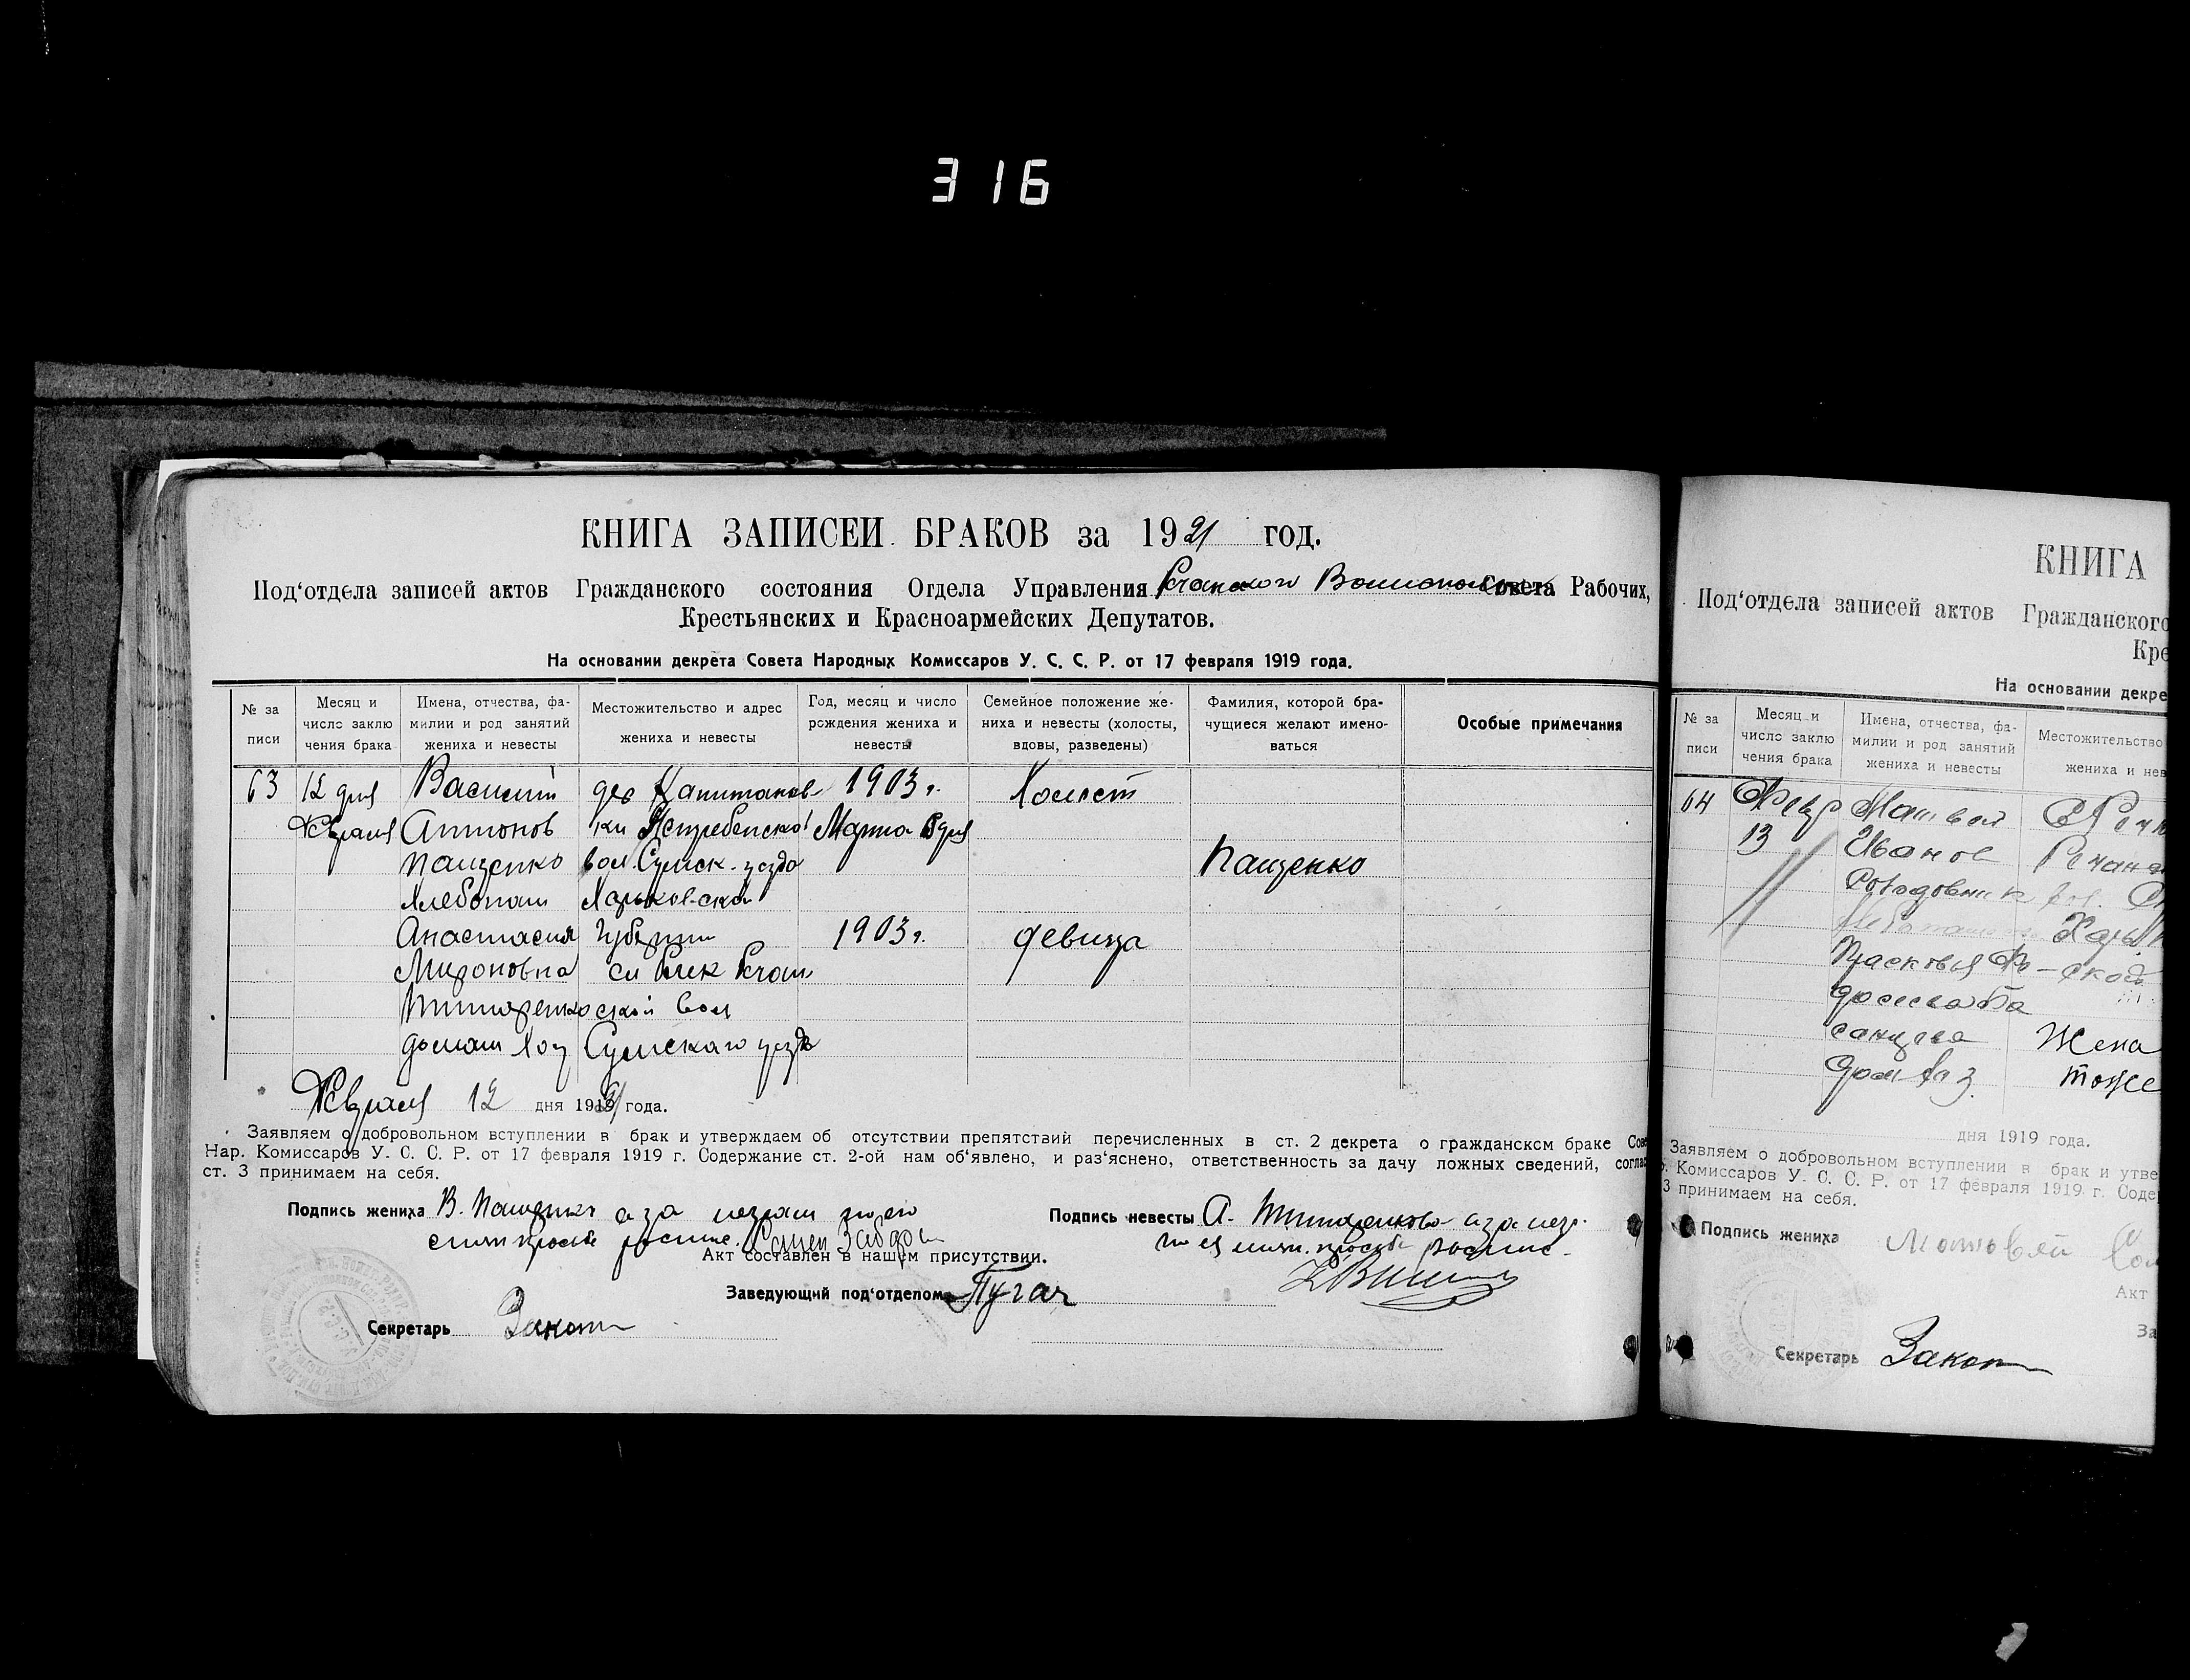 316
КНИГА ЗАПИСЕЙ БРАКОВ за 1921 год.
Под‘отдела записей актов Гражданского состояния Отдела Управления Совета Рабочих,
Крестьянских и Красноармейских Депутатов.
На основании декрета Совета Народных Комиссаров У. С. С. Р. от 17 февраля 1919 года.
№ за писи
Месяц и число заклю чения брака
Имена, отчества, фа- милии и род занятий жениха и невесты
Местожительство и адрес жениха и невесты
Год, месяц и число рождения жениха и невесты
Семейное положение же- ниха и невесты (холосты, вдовы, разведены)
Фамилия, которой бра- чущиеся желают имено- ваться
Особые примечания
63 12 дня Василий дер Капитанов- 1903 г. Холост
Февраля Антонов ки Ястребенской Марта дня
Пащенко вол. Сумск. уезда Пащенко
Хлебопаш Харьковской
Анастасия Губернии 1903 г. девица
Мироновна
Титаренко ской вол
домаш хоз Сумскаго уезда
Февраля 12 дня 1921 года.
Заявляем о добровольном вступлении в брак и утверждаем об отсутствии препятствий перечисленных в ст. 2 декрета о гражданском браке Сове
Нар. Комиссаров У. С. С. Р. от 17 февраля 1919 г. Содержание ст. 2-ой нам об‘явлено, и раз‘яснено, ответственность за дачу ложных сведений, соглас
ст. 3 принимаем на себя.
Подпись жениха В. Пащенко а за неграм по его
Подпись невесты А. Титаренкова а за негр.
Акт составлен в нашем присутствии.
Заведующий под‘отделом Пугач
Секретарь Закот
КНИГА
Под‘отдела записей актов Гражданского
Кре
На основании декре
№ за писи
Месяц и число заклю чения брака
Имена, отчества, фа- милии и род занятий жениха и невесты
Местожительство
жениха и нев
64 Февр Матвей
13 Иванов
Жена
тоже
дня 1919 года.
Заявляем о добровольном вступлении в брак и утве
. Комиссаров У. С. С. Р. от 17 февраля 1919 г. Соде
3 принимаем на себя.
Подпись жениха
Акт
За
Секретарь Закот